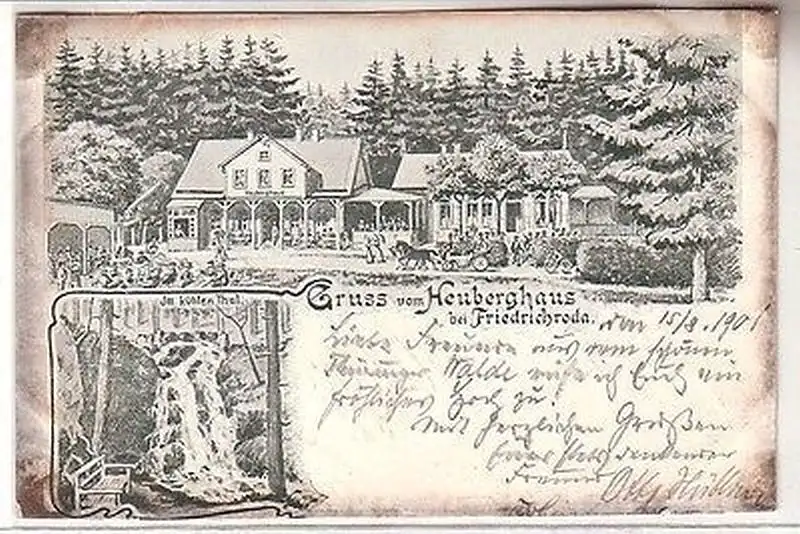 Im kühlen Thal.
Gruss vom Heuberghaus
bei Friedrichroda.
den 15/8. 1901
Liebe Freunde aus dem schönen
Thüringer Walde rufe ich Euch ein
fröhliches Hoch zu!
Mit herzlichen Grüßen
Euer stets denkender
Freund Otto